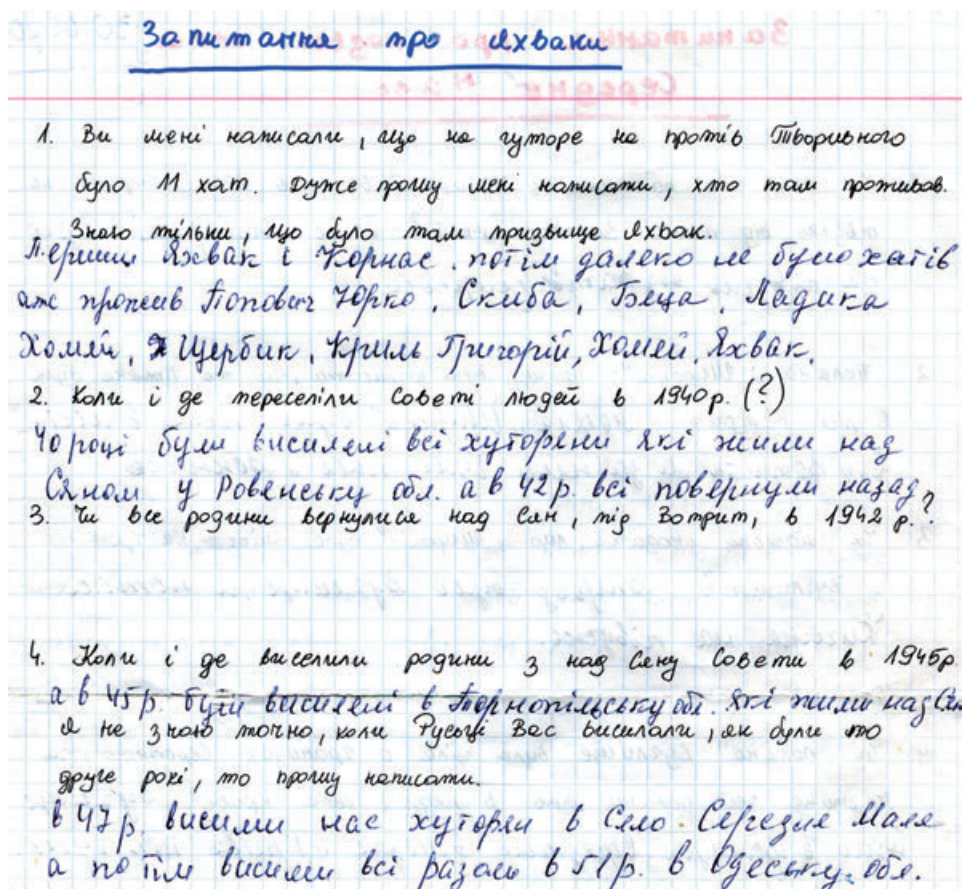 Запитання про Яхваки
1. Ви мені написали, що на гуторе на протів Творильного
було 11 хат. Дуже прошу мені написати, хто там проживав.
Знаю тільки, що було там призвище Яхвак.
Перший Яхвак і Корнас. потім далеко не було хатів
аж прожив Попович Юрко, Скиба, Беца, Ладика
Хомей, Щербик, Криль Григорій, Хомей, Яхвак.
2. Коли і де переселіли Советі людей в 1940р. (?)
40 році були виселені всі хуторени які жили над
Сяном у Ровенську обл. а в 42р. всі повернули назад.
3. Чи все родини вернулися над Сян, під Вотрит, в 1942 р.?
4. Коли і де виселили родини з над Сяну Совети в 1945р.
а в 45р. були виселені в Торнопільську обл. які жили над Сян
я не знаю точно, коли Руськи Вас висилали, як були то
друге рокі, то прошу написати.
в 47р. висили нас хуторян в Село Середня Маля
а потім висили всі разом в 51р. в Одеську обл.